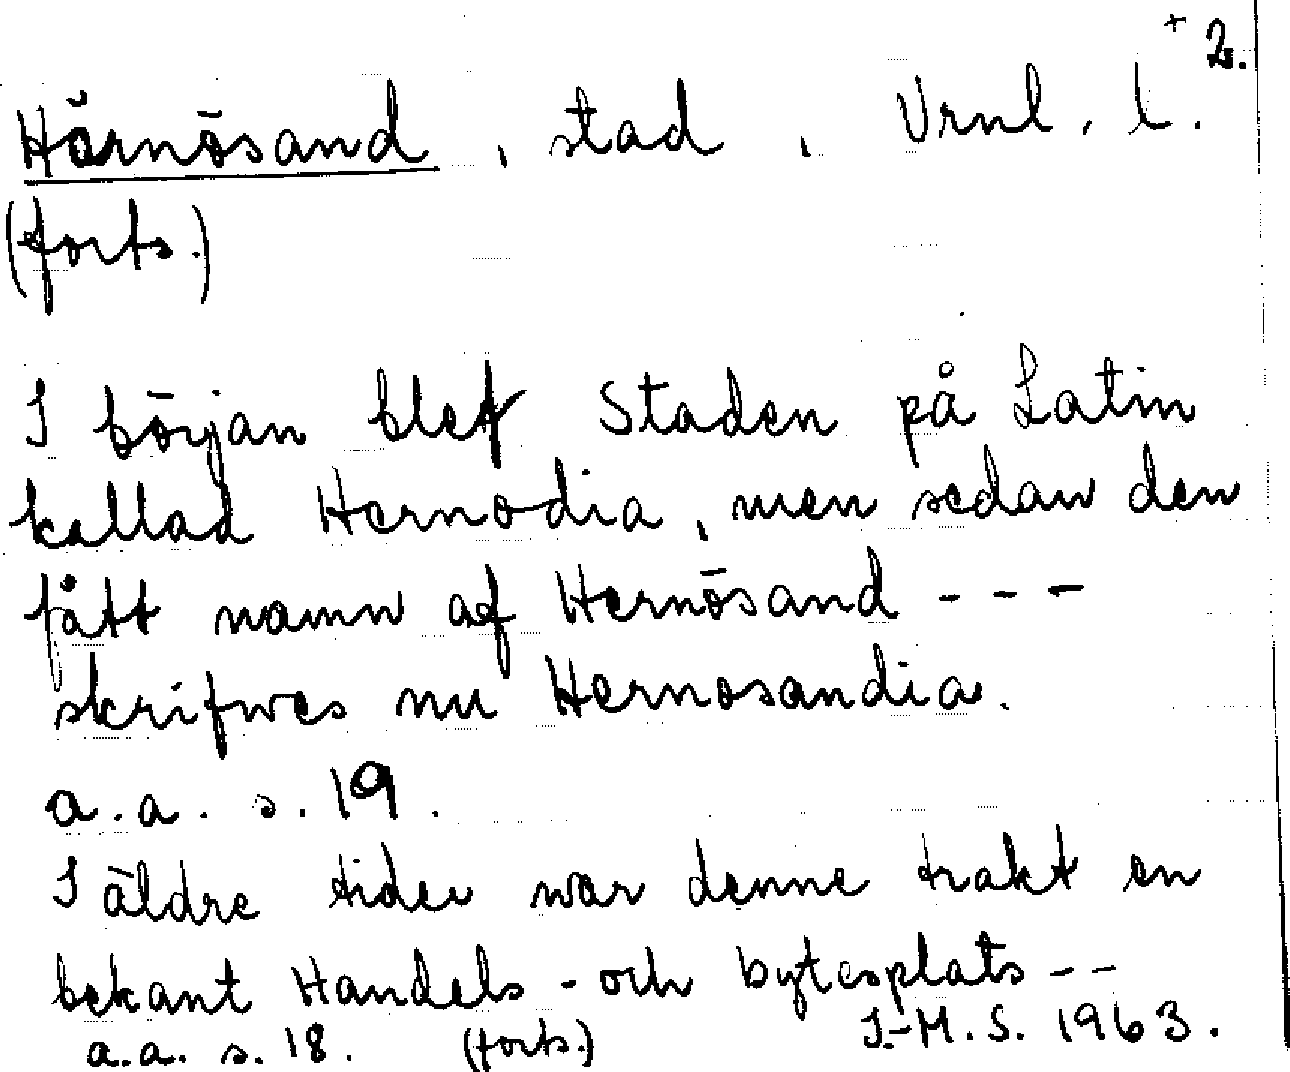 + 2.
Härnösand, stad, Vrnl. l.
(forts.)
I början blef Staden på Latin
kallad Hernodia, men sedan den
fått namn af Hernösand - - -
skrifwes nu Hernosandia.
a.a. s. 19.
I äldre tider war denne trakt en
bekant Handels - och bytesplats - -
a.a. s. 18. (forts.) I.-M.S. 1963.